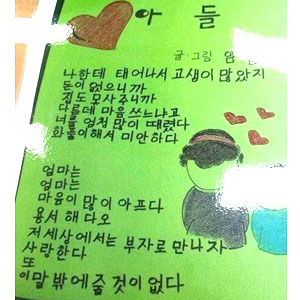 아들
글·그림
나한테 태어나서 고생이 많았지
돈이 없으니까
집도 못사주니까
다른데 마음쓰느냐고
너를 엄청 많이 때렸다
화풀이해서 미안하다
엄마는
엄마는
마음이 많이 아프다
용서해다오
저세상에서는 부자로 만나자
사랑한다
또
이말 밖에 줄 것이 없다